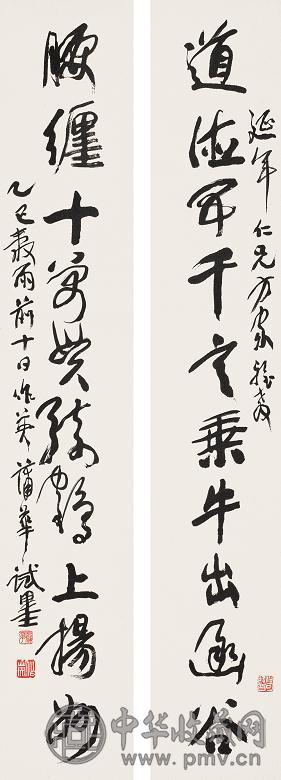 延年仁兄方家雅教
道德五千言乘牛出函谷
腰纏十萬貫騎鶴上揚州
乙巳穀雨前十日作英蒲華試墨
中华收藏网